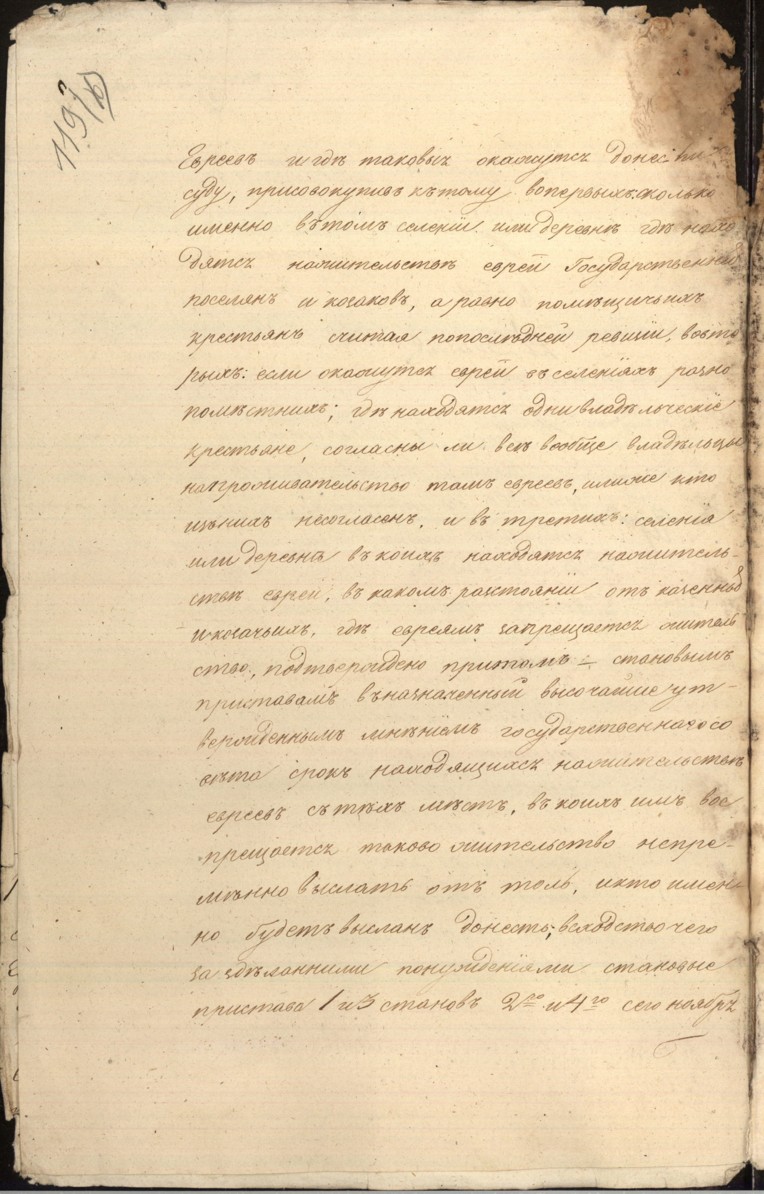 1197
Евреевъ и гдѣ таковыя окажутся донести
суду, присовокупивъ кътому вопервыхъ: сколько
именно вътомъ селеніи или деревнѣ гдѣ нахо
дятся нажительствѣ евреи Государственныхъ
поселянъ и козаковъ, а равно помѣщичьихъ
крестьянъ считая попослѣдней ревизіи, вовто
рыхъ: если окажутся евреи въ селеніяхъ разно
помѣстнихъ; гдѣ находятся одни владѣльческіе
крестьяне, согласны ли всѣ вообще владѣльцы
напроживательство тамъ евреевъ, илиже кто
изъ нихъ несогласенъ, и въ третихъ: селенія
или деревнѣ въ коихъ находятся нажитель-
ствѣ евреи, въ какомъ разстояніи отъ казенныхъ
и козачьихъ, гдѣ евреямъ запрещается житель
ство, подтверждено притомъ становымъ
приставамъ въ назначенный высочайше ут-
вержденнымъ мнѣніемъ государственнаго со
вѣта срокъ находящихся нажительствѣ
евреевъ сътѣхъ мѣстъ, въ коихъ имъ вос
прещается таково жительство непре-
мѣнно выслать отъ толь, и кто имен
но будетъ высланъ донесть; всходство чего
за здѣланними понужденіями становые
пристава 1 и 3 становъ 2го и 4го сего ноября